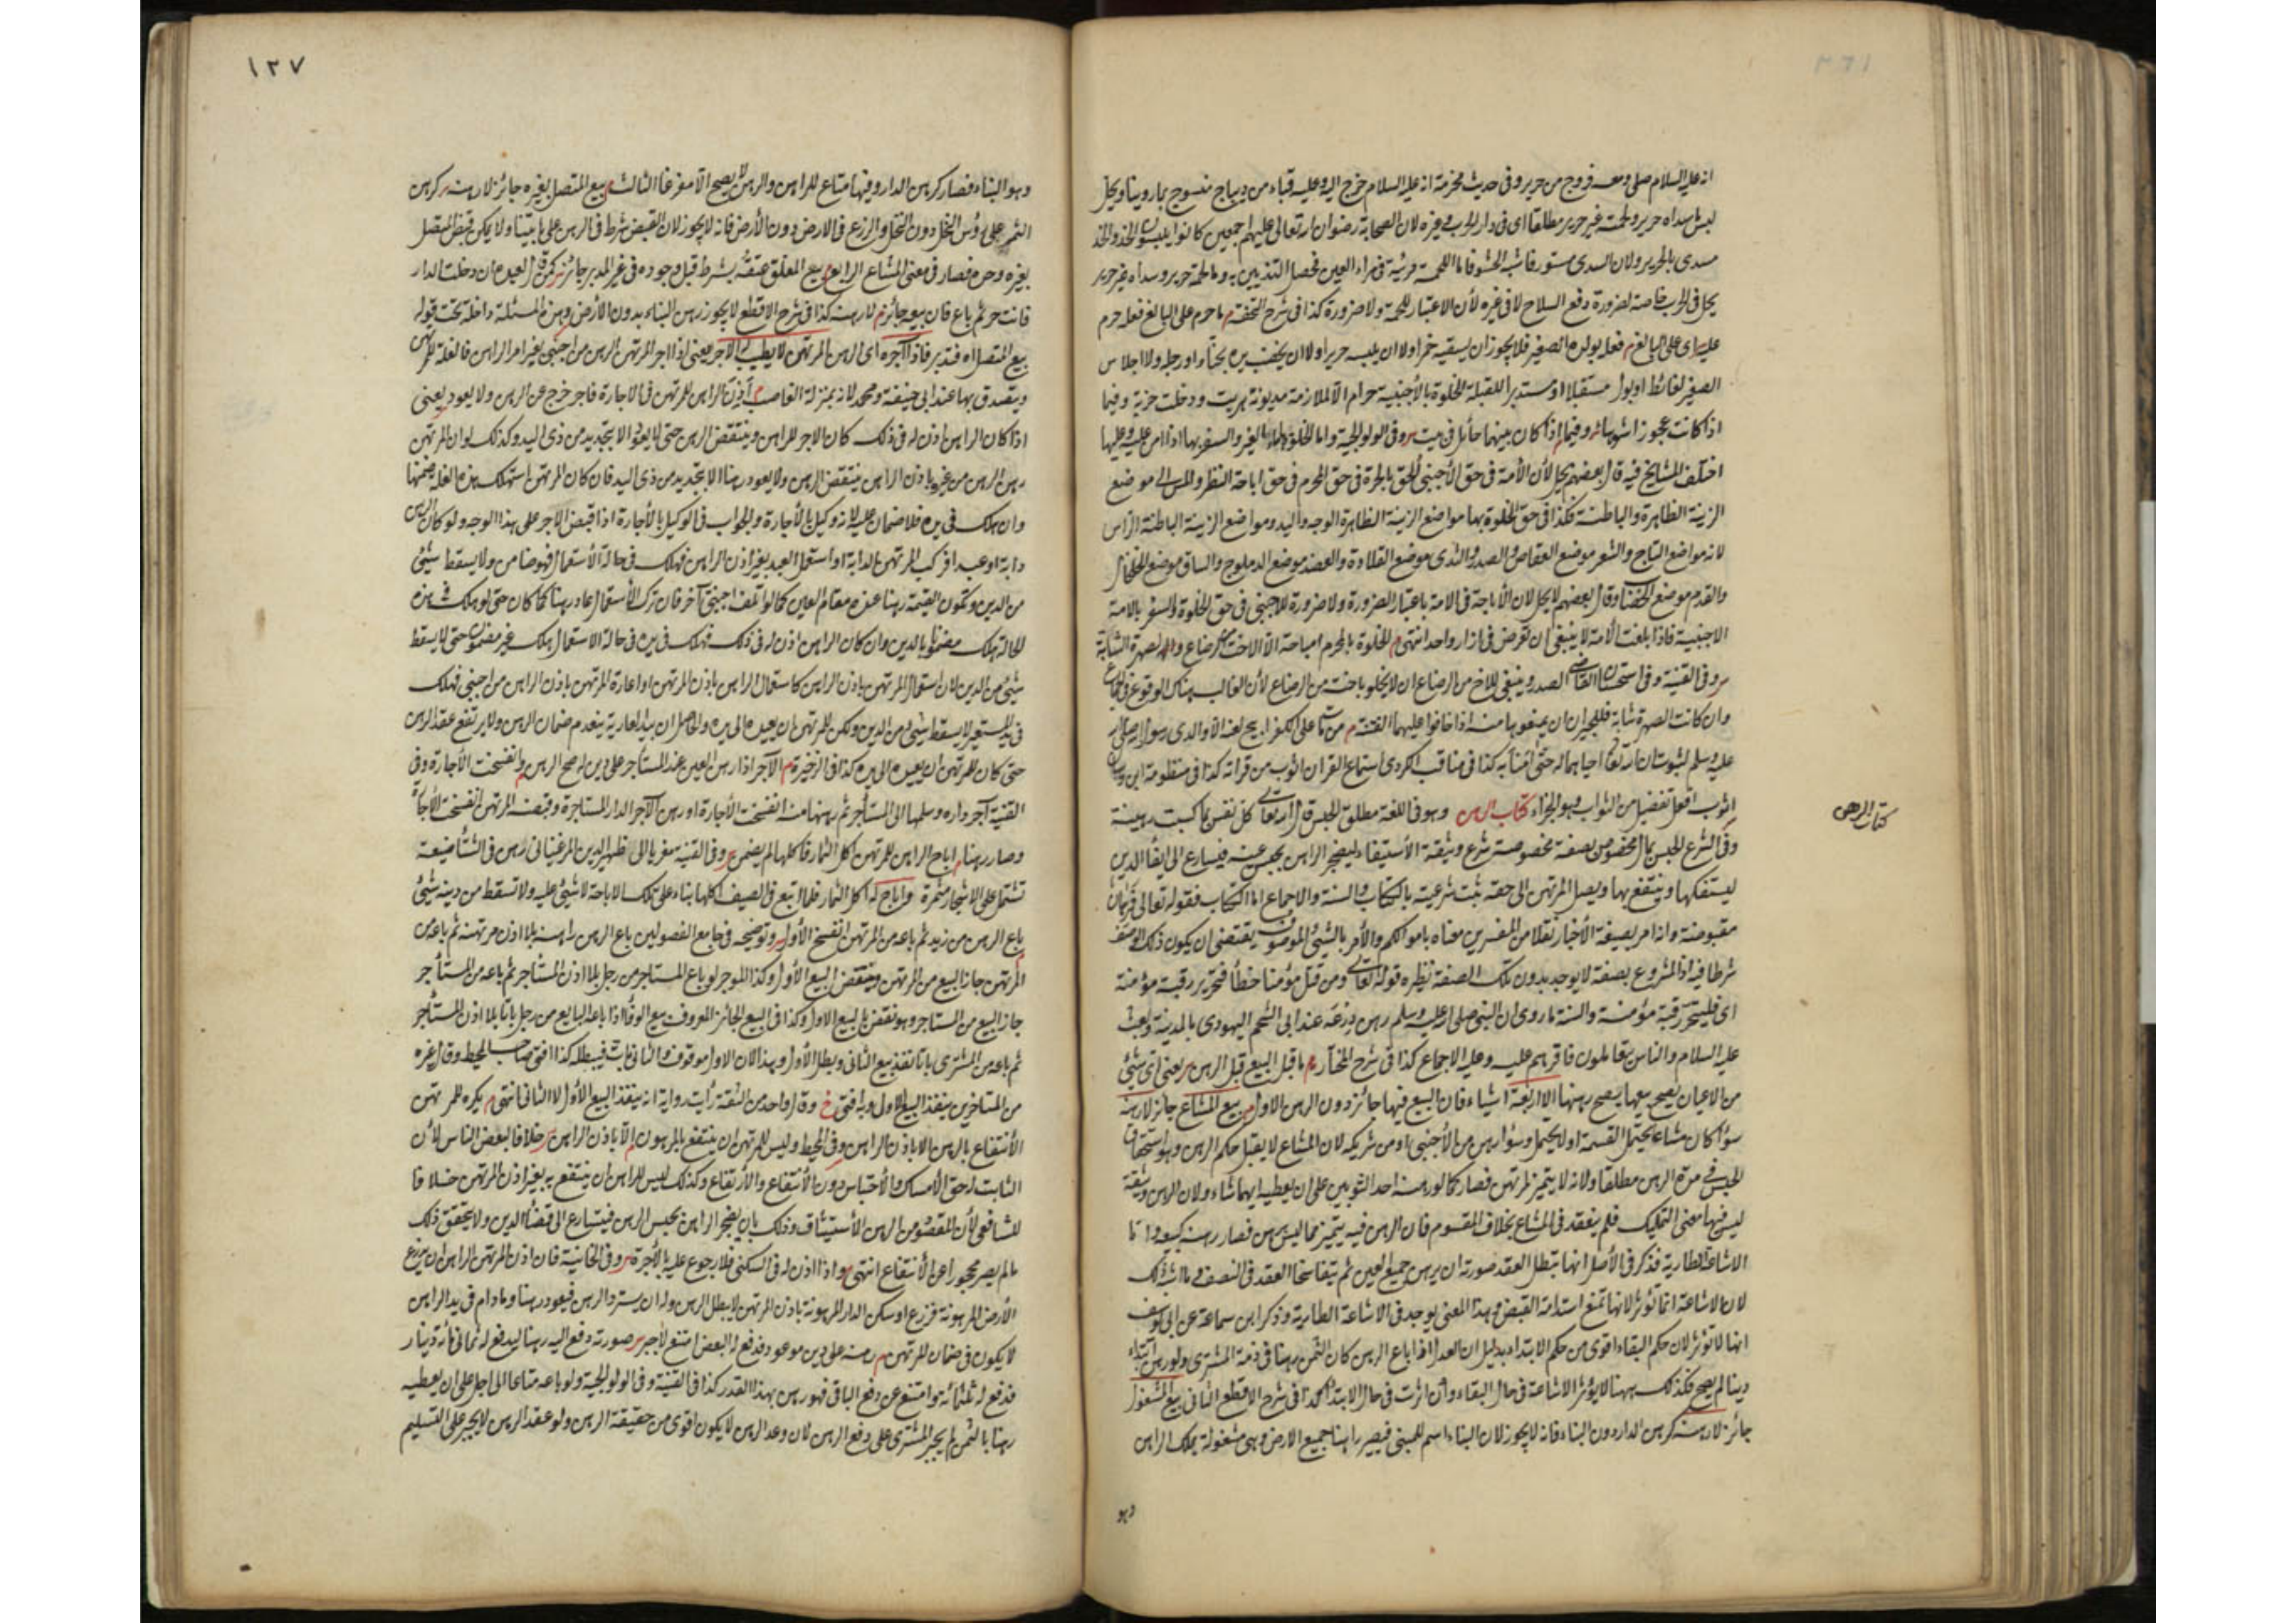 انه عليه السلام صلى ومعه فروج من حرير وفى حديث مخرمة انه عليه السلام خرج اليه وعليه قباء من ديباج منسوج بما روينا ويحل
لبس ما سداه حرير ولحمته غير حرير مطلقا اى فى دار الحرب وغيره لان الصحابة رضوان الله تعالى عليهم اجمعين كانوا يلبسون الخز والخز
مسدى بالحرير ولان السدى مستور فاشبه الحشو فاما اللحمة مرئية فى مراء العين فحصل التزيين به وما لحمته حرير وسداه غير حرير
يحل فى الحرب خاصة لضرورة دفع السلاح لا فى غيره لأن الاعتبار للحمة ولا ضرورة كذا فى شرح التحفة م ما حرم على البالغ فعله حرم
عليه اى على البالغ م فعله بولده الصغير فلا يجوز ان يسقيه خمرا ولا ان يلبسه حريرا ولا ان يخضب يده بحناء او رجله ولا اجلاس
الصغير لغائط او بول مستقبلا او مستدبرا للقبلة الخلوة بالأجنبية حرام الا لملازمة مديونة هربت ودخلت خربة وفيما
اذا كانت عجوزا شوهاء وفيما اذا كان بينهما حائل فى بيت وفى الولوالجية واما الخلوة بامة الغير والسفر بها اذا امن عليه وعليها
اختلف المشايخ فيه قال بعضهم يحل لأن الأمة فى حق الأجنبى الحق بالحرة فى حق المحرم فى حق اباحة النظر والمس الى مواضع
الزينة الظاهرة والباطنة فكذا فى حق الخلوة بها مواضع الزينة الظاهرة الوجه واليد ومواضع الزينة الباطنة الراس
لانه مواضع التاج والشعر موضع العقاص والصدر والثدى موضع القلادة والعضد موضع الدملوج والساق موضع الخلخال
والقدم موضع الخضاب وقال بعضهم لا يحل لان الأباحة فى الامة باعتبار الضرورة ولا ضرورة للاجنبى فى حق الخلوة والسفر بالامة
الاجنبية فاذا بلغت الأمة لا ينبغى ان تعرض فى ازار واحد انتهى م الخلوة بالمحرم مباحة الا الاخت من الرضاع والصهرة الشابة
وفى القنية وفى استحسان القاضى الصدر وينبغى للاخ من الرضاع ان لا يخلو باخته من الرضاع لأن الغالب هناك الوقوع فى الجماع
وان كانت الصهرة شابة فللجيران ان يمنعوها منه اذا خافوا عليهما الفتنة م من مات على الكفر ابيح لعنه الا والدى رسول الله صلى الله
عليه وسلم لثبوت ان الله تعالى احياهما له حتى امنا به كذا فى مناقب الكردرى استماع القران اثوب من قراته كذا فى منظومة ابن وهبان
اثوب افعل تفضيل من الثواب وهو الجزاء كتاب الرهن وهو فى اللغة مطلق الحبس قال الله تعالى كل نفس بما كسبت رهينة
وفى الشرع الحبس بمال مخصوص بصفة مخصوصة شرع وثيقة للاستيفاء ليضجر الراهن بحبس عينه فيسارع الى ايفاء الدين
ليستفكها وينتفع بها ويصل المرتهن الى حقه ثبت شرعيته بالكتاب والسنة والاجماع اما الكتاب فقوله تعالى فرهان
مقبوضة وانه امر بصيغة الأخبار نقلا من المفسرين معناه بامواكلكم والأمر بالشئ الموصوف يقتضى ان يكون ذلك الوصف
شرطا فيه اذ المشروع بصفة لا يوجد بدون تلك الصفة نظيره قوله تعالى ومن قتل مؤمنا خطأ فتحرير رقبة مؤمنة
اى فليتحرر رقبة مؤمنة والسنة ما روى ان النبى صلى الله عليه وسلم رهن درعه عند ابى الشحم اليهودى بالمدينة وبعث
عليه السلام والناس يتعاملون فاقرهم عليه وعليه الاجماع كذا فى شرح المختار م ما قبل البيع قبل الرهن يعنى اى شئ
من الاعيان يصح بيعها يصح رهنها الا اربعة اشياء فان البيع فيها جائز دون الرهن الاول بيع المشاع جائز لا رهنه
سواء كان مشاعا يحتمل القسمة او لا يحتمل وسواء رهن من الأجنبى او من شريكه لان المشاع لا يقبل حكم الرهن وهو استحقاق
الحبس فى مدة الرهن مطلقا ولانه لا يتميز المرتهن فصار كما لو رهنه احد الثوبين على ان يعطيه ايهما شاء ولان الرهن وثيقة
ليس فيها معنى التمليك فلم ينعقد فى المشاع بخلاف المقسوم فان الرهن فيه يتميز مما ليس برهن فصار رهنه كبيعه واما
الاشاعة الطارية فذكر فى الأصل انها تبطل العقد صورته ان يرهن جميع العين ثم يتفاسخا العقد فى النصف وما اشبه ذلك
لان الاشاعة انما تؤثر لانها تمنع استدامة القبض وهذا المعنى يوجد فى الاشاعة الطارية وذكر ابن سماعة عن ابى يوسف
انها لا تؤثر لان حكم البقاء اقوى من حكم الابتداء بدليل ان العدل اذا باع الرهن كان الثمن رهنا فى ذمة المشترى ولو رهن ابتداء
دينا لم يصح فكذلك ههنا لا يؤثر الاشاعة فى حال البقاء وان اثرت فى حال الابتداء كذا فى شرح الاقطع الثانى بيع المشغول
جائز لا رهنه كرهن الدار دون البناء فانه لا يجوز لان البناء اسم للمبنى فيصير راهنا جميع الارض وهى مشغولة بملك الراهن
وهو
كتاب الرهن
١٢٧
وهو البناء فصار كرهن الدار وفيها متاع للراهن والرهن لا يصح الا مفرغا الثالث بيع المتصل بغيره جائز لا رهنه كرهن
الثمر على رؤس النخل دون النخل والزرع فى الارض دون الأرض فانه لا يجوز لان القبض شرط فى الرهن على ما بيتنا ولا يمكن قبض المتصل
بغيره وحده فصار فى معنى المشاع الرابع بيع المعلق عتقه بشرط قبل وجوده فى غير المدبر جائز كمن قال لعبده ان دخلت الدار
فانت حر ثم باع فان بيعه جائز م لا رهنه كذا فى شرح الاقطع لا يجوز رهن البناء بدون الأرض وهذه المسئلة داخلة تحت قوله
بيع المتصل اه فتدبر فاذا آجره اى الرهن المرتهن لا يطيب له الاجر يعنى اذا اجر المرتهن الرهن من اجنبى بغير امر الراهن فالغلة للمرتهن
ويتصدق بها عند ابى حنيفة ومحمد لانه بمنزلة الغاصب م أذن الراهن للمرتهن فى الاجارة فاجر خرج عن الرهن ولا يعود يعنى
اذا كان الراهن اذن له فى ذلك كان الاجر للراهن وينتقض الرهن حتى لا يعود الا بتجديد من ذى اليد وكذلك لو ان المرتهن
رهن الرهن من غيره باذن الراهن ينتقض الرهن ولا يعود رهنا الا بتجديد من ذى اليد فان كان المرتهن استهلك هذه الغلة ضمنها
وان هلك فى يده فلا ضمان عليه لانه وكيل بالأجارة والجواب فى الوكيل بالأجارة اذا قبض الاجر على هذا الوجه ولو كان الرهن
دابة او عبدا فركب المرتهن الدابة او استعمل العبد بغير اذن الراهن فهلك فى حالة الأستعمال فهو ضامن ولا يسقط شئ
من الدين وتكون القيمة رهنا عنده مقام العين كما لو اتلفه اجنبى آخر فان ترك الأستعمال عاد رهنا كما كان حتى لو هلك فى هذه
الحالة هلك مضمونا بالدين وان كان الراهن اذن له فى ذلك فهلك فى يده فى حالة الاستعمال هلك غير مضمون حتى لا يسقط
شئ من الدين لان استعمال المرتهن باذن الراهن كاستعمال الراهن باذن المرتهن او اعارة المرتهن باذن الراهن من اجنبى فهلك
فى يد المستعير لا يسقط شئ من الدين ولكن للمرتهن ان يعيده الى يده والحاصل ان بيد العارية ينعدم ضمان الرهن ولا يرتفع عقد الرهن
حتى كان للمرتهن ان يعيده الى يده كذا فى الذخيرة م الآجر اذا رهن العين عند المستأجر على دين له صح الرهن وانفسخت الأجارة وفى
القنية آجر داره وسلمها الى المستأجر ثم رهنها منه انفسخت الأجارة او رهن الآجر الدار المستاجرة وقبضه المرتهن انفسخت الأجارة
وصار رهنا م اباح الراهن للمرتهن اكل الثمار فاكلها لم يضمن وفى القنية معزيا الى ظهير الدين المرغينانى رهن فى الشتاء ضيعة
تشتمل على الاشجار مثمرة واباح له اكل الثمار فلما اتبع فى الصيف اكلها بناء على تلك الاباحة لا شئ عليه ولا تسقط من دينه شئ
باع الرهن من زيد ثم باعه من المرتهن انفسخ الأول وتوضيحه فى جامع الفصولين باع الرهن راهنه بلا اذن مرتهنه ثم باعه من
المرتهن جاز البيع من المرتهن وينتقض البيع الأول وكذا الموجر لو باع المستاجر من رجل بلا اذن المستأجر ثم باعه من المستأجر
جاز البيع من المستاجر وهو نقض للبيع الاول وكذا فى البيع الجائز المعروف ببيع الوفاء اذا باعه البايع من رجل باتا بلا اذن المستأجر
ثم باعه من المشترى باتا نفذ بيع الثانى وبطل الأول وهذا لان الاول موقوف والثانى بات فيبطله كذا افتى صاحب المحيط وقال غيره
من المتاخرين ينفذ البيع الاول وبه افتى خ وقال واحد من الثقة رأيت رواية انه ينفذ البيع الأول لا الثانى انتهى م يكره للمرتهن
الأنتفاع بالرهن الا باذن الراهن وفى المحيط وليس للمرتهن ان ينتفع بالمرهون الا باذن الراهن خلافا لبعض الناس لأن
الثابت له حق الأمساك والأحتباس دون الأنتفاع والأرتفاع وكذلك ليس للراهن ان ينتفع به بغير اذن المرتهن خلافا
للشافعى لأن المقصود من الرهن الأستيثاق وذلك بان يضجر الراهن بحبس الرهن فيتسارع الى قضاء الدين ولا يتحقق ذلك
ما لم يصر محجورا عن الأنتفاع انتهى واذا اذن له فى السكنى فلا رجوع عليه بالأجرة وفى الخانية فان اذن المرتهن الراهن ان يزرع
الأرض المرهونة فزرع او سكن الدار المرهونة باذن المرتهن لا يبطل الرهن وله ان يسترد الرهن فيعود رهنا وما دام فى يد الراهن
لا يكون فى ضمان المرتهن م رهنه على دين موعود فدفع له البعض امتنع لا جبر صورته دفع اليه رهنا ليدفع له ثمانمائة دينار
فدفع له ثلثمائة وامتنع عن دفع الباقى فهو رهن بهذا القدر كذا فى القنية وفى الولوالجية ولو باعه متاعا الى اجل على ان يعطيه
رهنا بالثمن لم يجبر المشترى على دفع الرهن لان وعد الرهن لا يكون اقوى من حقيقة الرهن ولو عقد الرهن لا يجبر على التسليم